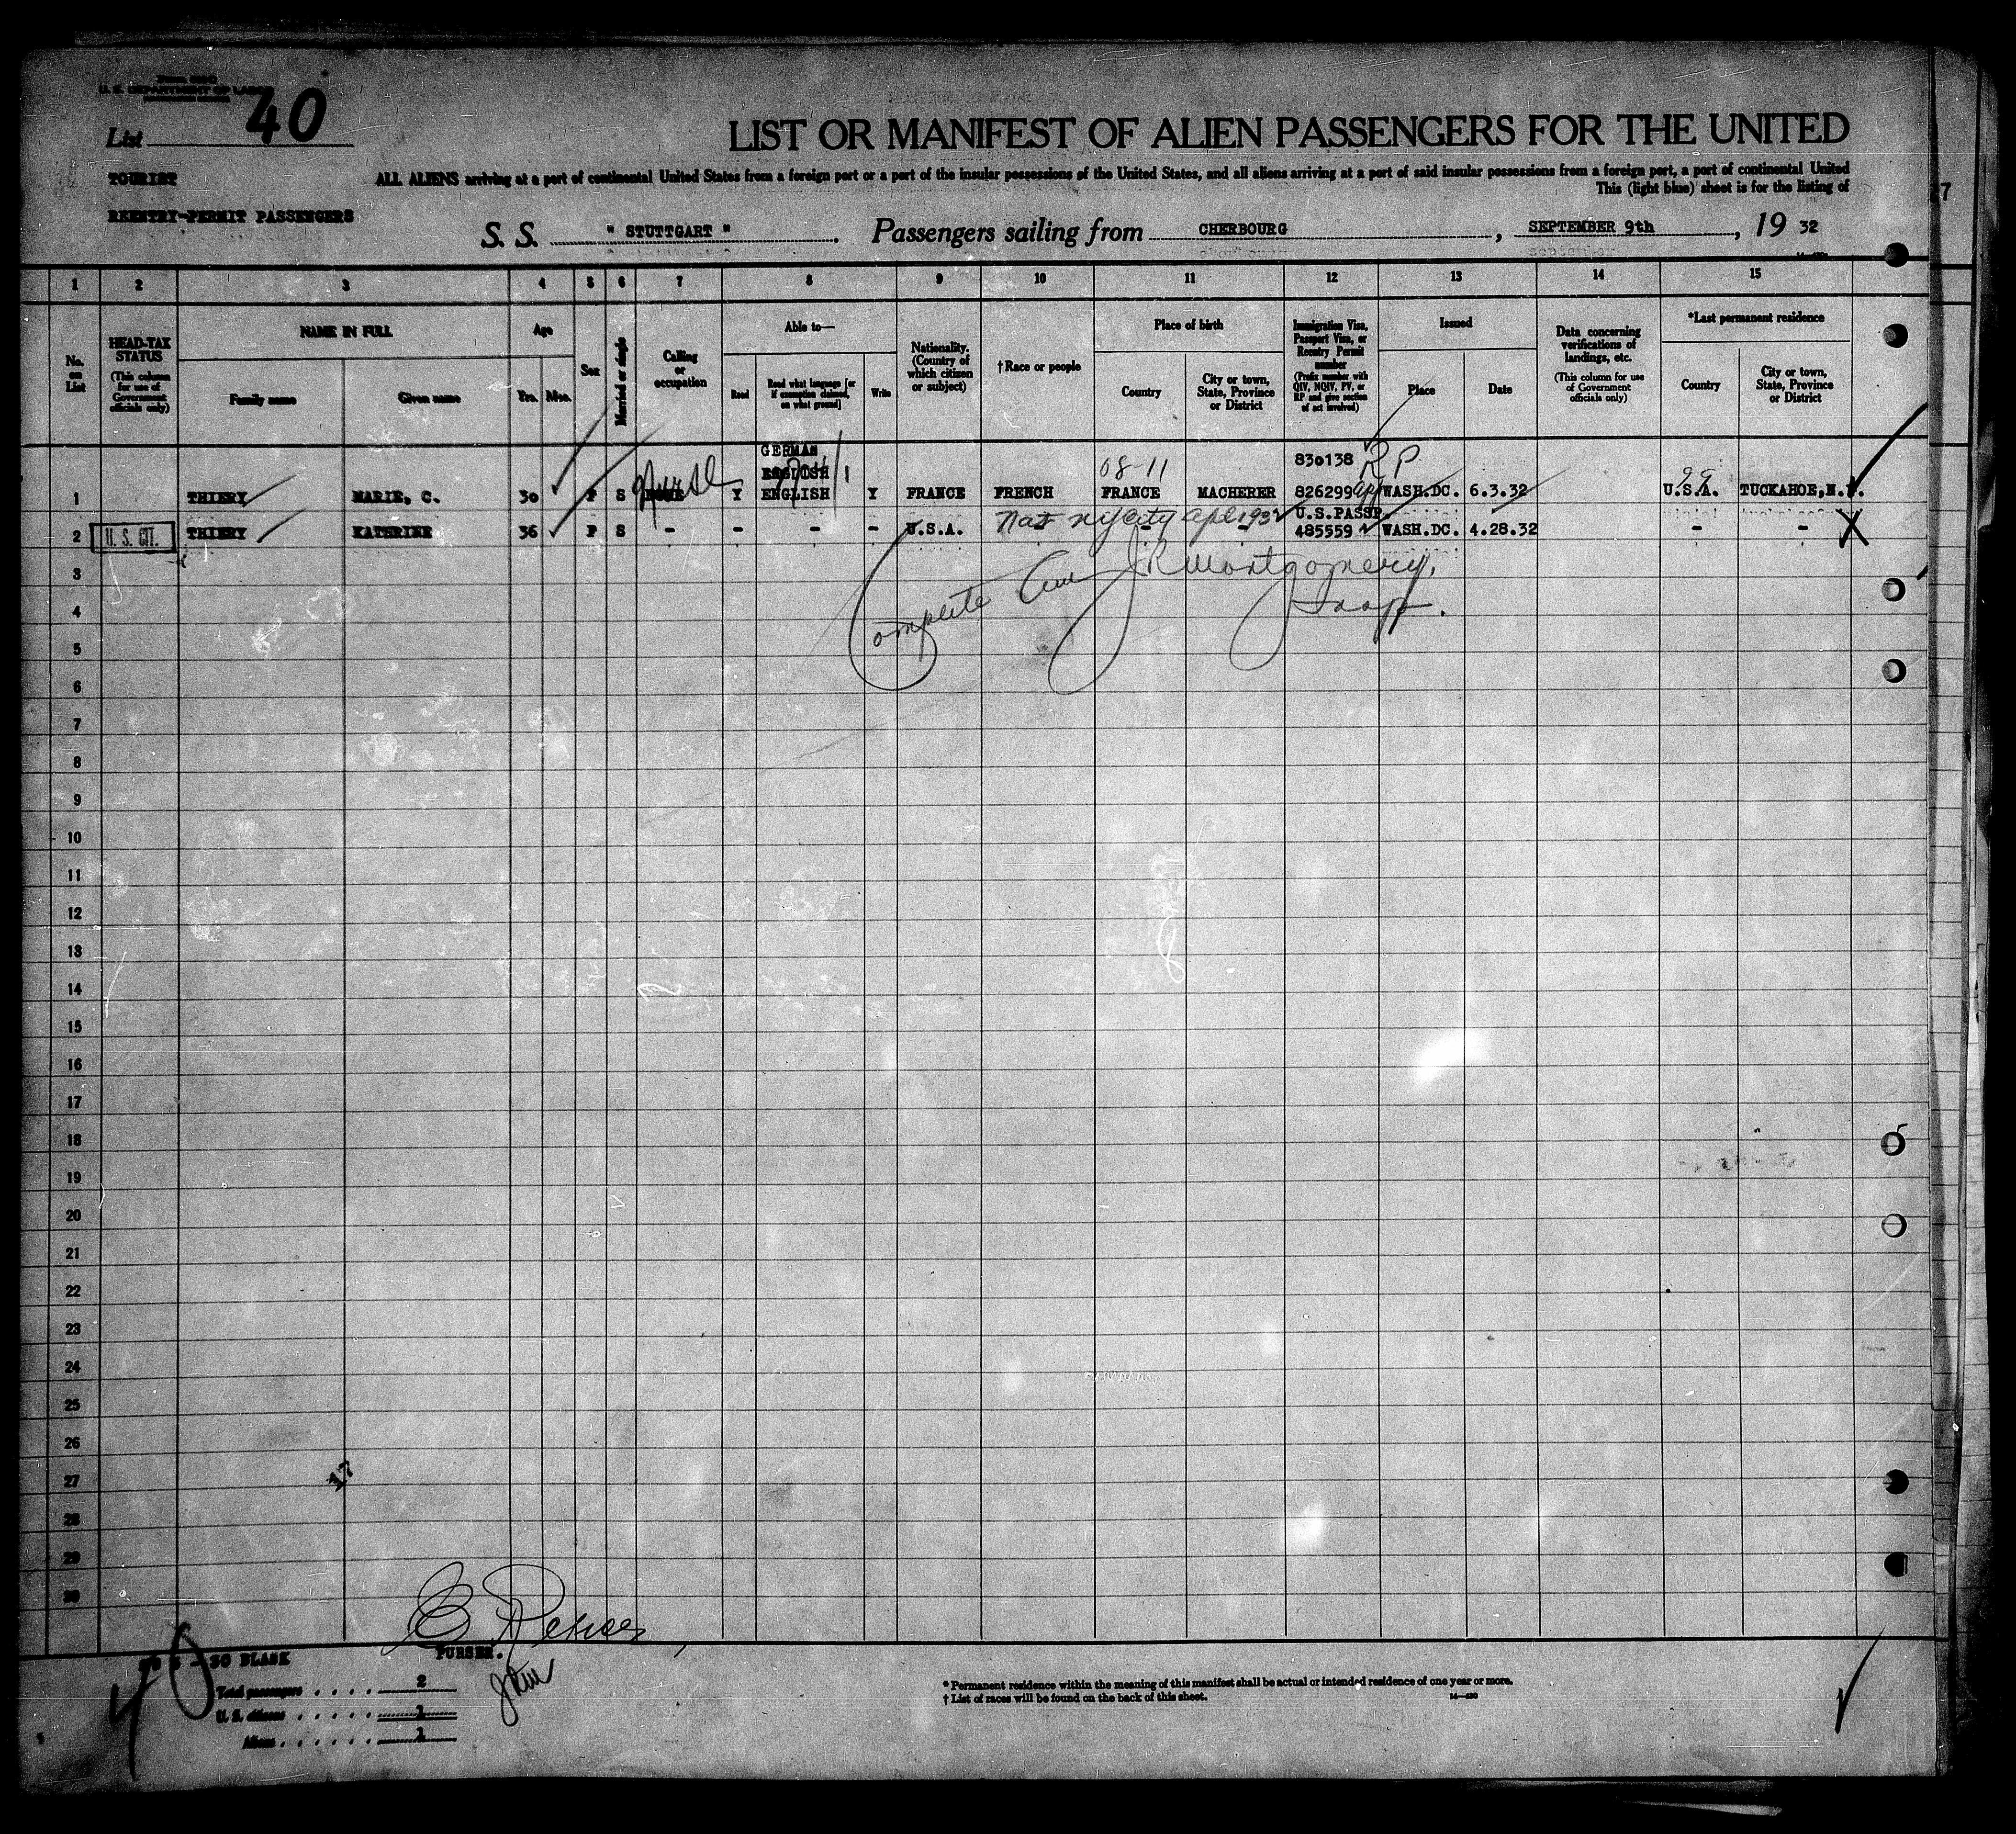 U. S. DEPARTMENT OF LABOR
List 40
LIST OR MANIFEST OF ALIEN PASSENGERS FOR THE UNITED
TOURIST
ALL ALIENS arriving at a port of continental United States from a foreign port or a port of the insular possessions of the United States, and all aliens arriving at a port of said insular possessions from a foreign port, a port of continental United
This (light blue) sheet is for the listing of
REENTRY-PERMIT PASSENGERS
S. S. " STUTTGART " . Passengers sailing from CHERBOURG , SEPTEMBER 9th , 19 32
1 2 3 4 5 6 7 8 9 10 11 12 13 14 15
No. on List
HEAD-TAX STATUS (This column for use of Government officials only)
NAME IN FULL
Family name Given name
Age
Yrs. Mos.
Sex
Married or single
Calling or occupation
Able to—
Read Read what language [or if exemption claimed, on what ground] Write
Nationality. (Country of which citizen or subject)
†Race or people
Place of birth
Country City or town, State, Province or District
Immigration Visa, Passport Visa, or Reentry Permit number (Prefix number with QIV, NQIV, PV, or RP and give section of act involved)
Issued
Place Date
Data concerning verifications of landings, etc. (This column for use of Government officials only)
*Last permanent residence
Country City or town, State, Province or District
GERMAN
ENGLISH 08-11 830138 RP
1 THIERY MARIE, C. 30 F S Nurse Y ENGLISH Y FRANCE FRENCH FRANCE MACHERER 826299 WASH.DC. 6.3.32 U.S.A. TUCKAHOE, N.Y.
U.S.PASSP.
2 U. S. CIT. THIERY KATHRINE 36 F S - - - - U.S.A. Nat ny city apl 1932 485559 WASH.DC. 4.28.32 - -
3
Complete JR Montgomery,
4
Insp.
5
6
7
8
9
10
11
12
13
14
15
16
17
18
19
20
21
22
23
24
25
26
27
17
28
29
30
PURSER.
30 BLANK
40
Total passengers 2
U. S. citizens 1
Aliens 1
* Permanent residence within the meaning of this manifest shall be actual or intended residence of one year or more.
† List of races will be found on the back of this sheet.